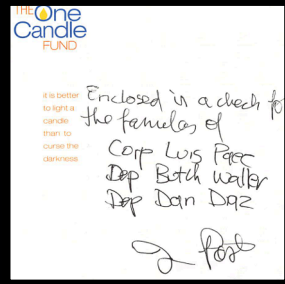 THE
One
Candle
FUND
it is better
to light a
candle
than to
curse the
darkness
Enclosed is a check for
the families of
Corp Luis Paez
Dep Butch Waller
Dep Dan Diaz
Post